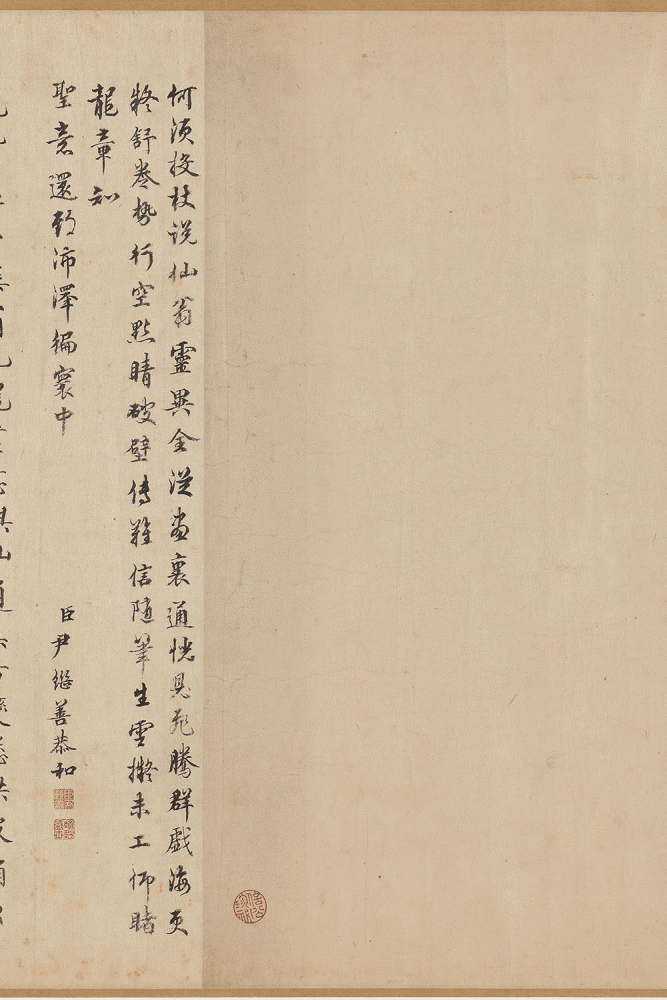 何須投杖說仙翁靈異全從畫裏通恍見飛騰群戲海更
疑舒卷勢行空點睛破壁傳難信隨筆生雲擬未工仰睹
龍章知
聖意還敷沛澤徧寰中
臣尹繼善恭和